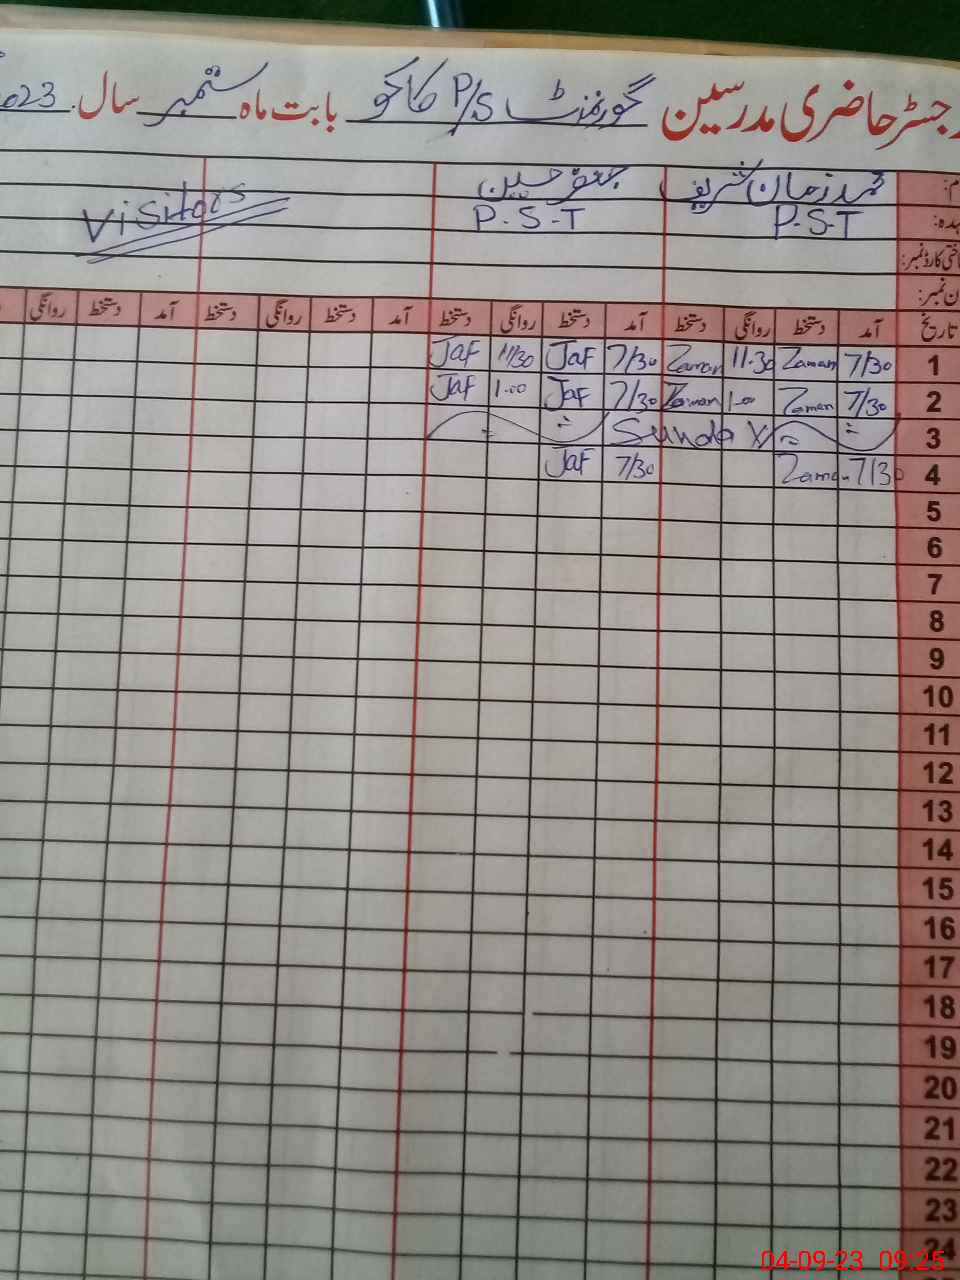 جسٹر حاضری مدرسین گورنمنٹ P/S کاکو بابت ماہ ستمبر سال 2023
محمد زمان شریف جعفر حسین
P.S.T P-S-T Visitors
تاریخ آمد دستخط روانگی دستخط آمد دستخط روانگی دستخط آمد دستخط روانگی دستخط آمد دستخط روانگی
1 7/30 Zaman 11.30 Zaman 7/30 Jaf 11/30 Jaf
2 7/30 Zaman 1-00 Zaman 7/30 Jaf 1.00 Jaf
3 Sunday
4 7/30 Zaman 7/30 Jaf
5
6
7
8
9
10
11
12
13
14
15
16
17
18
19
20
21
22
23
24
04-09-23 09:25